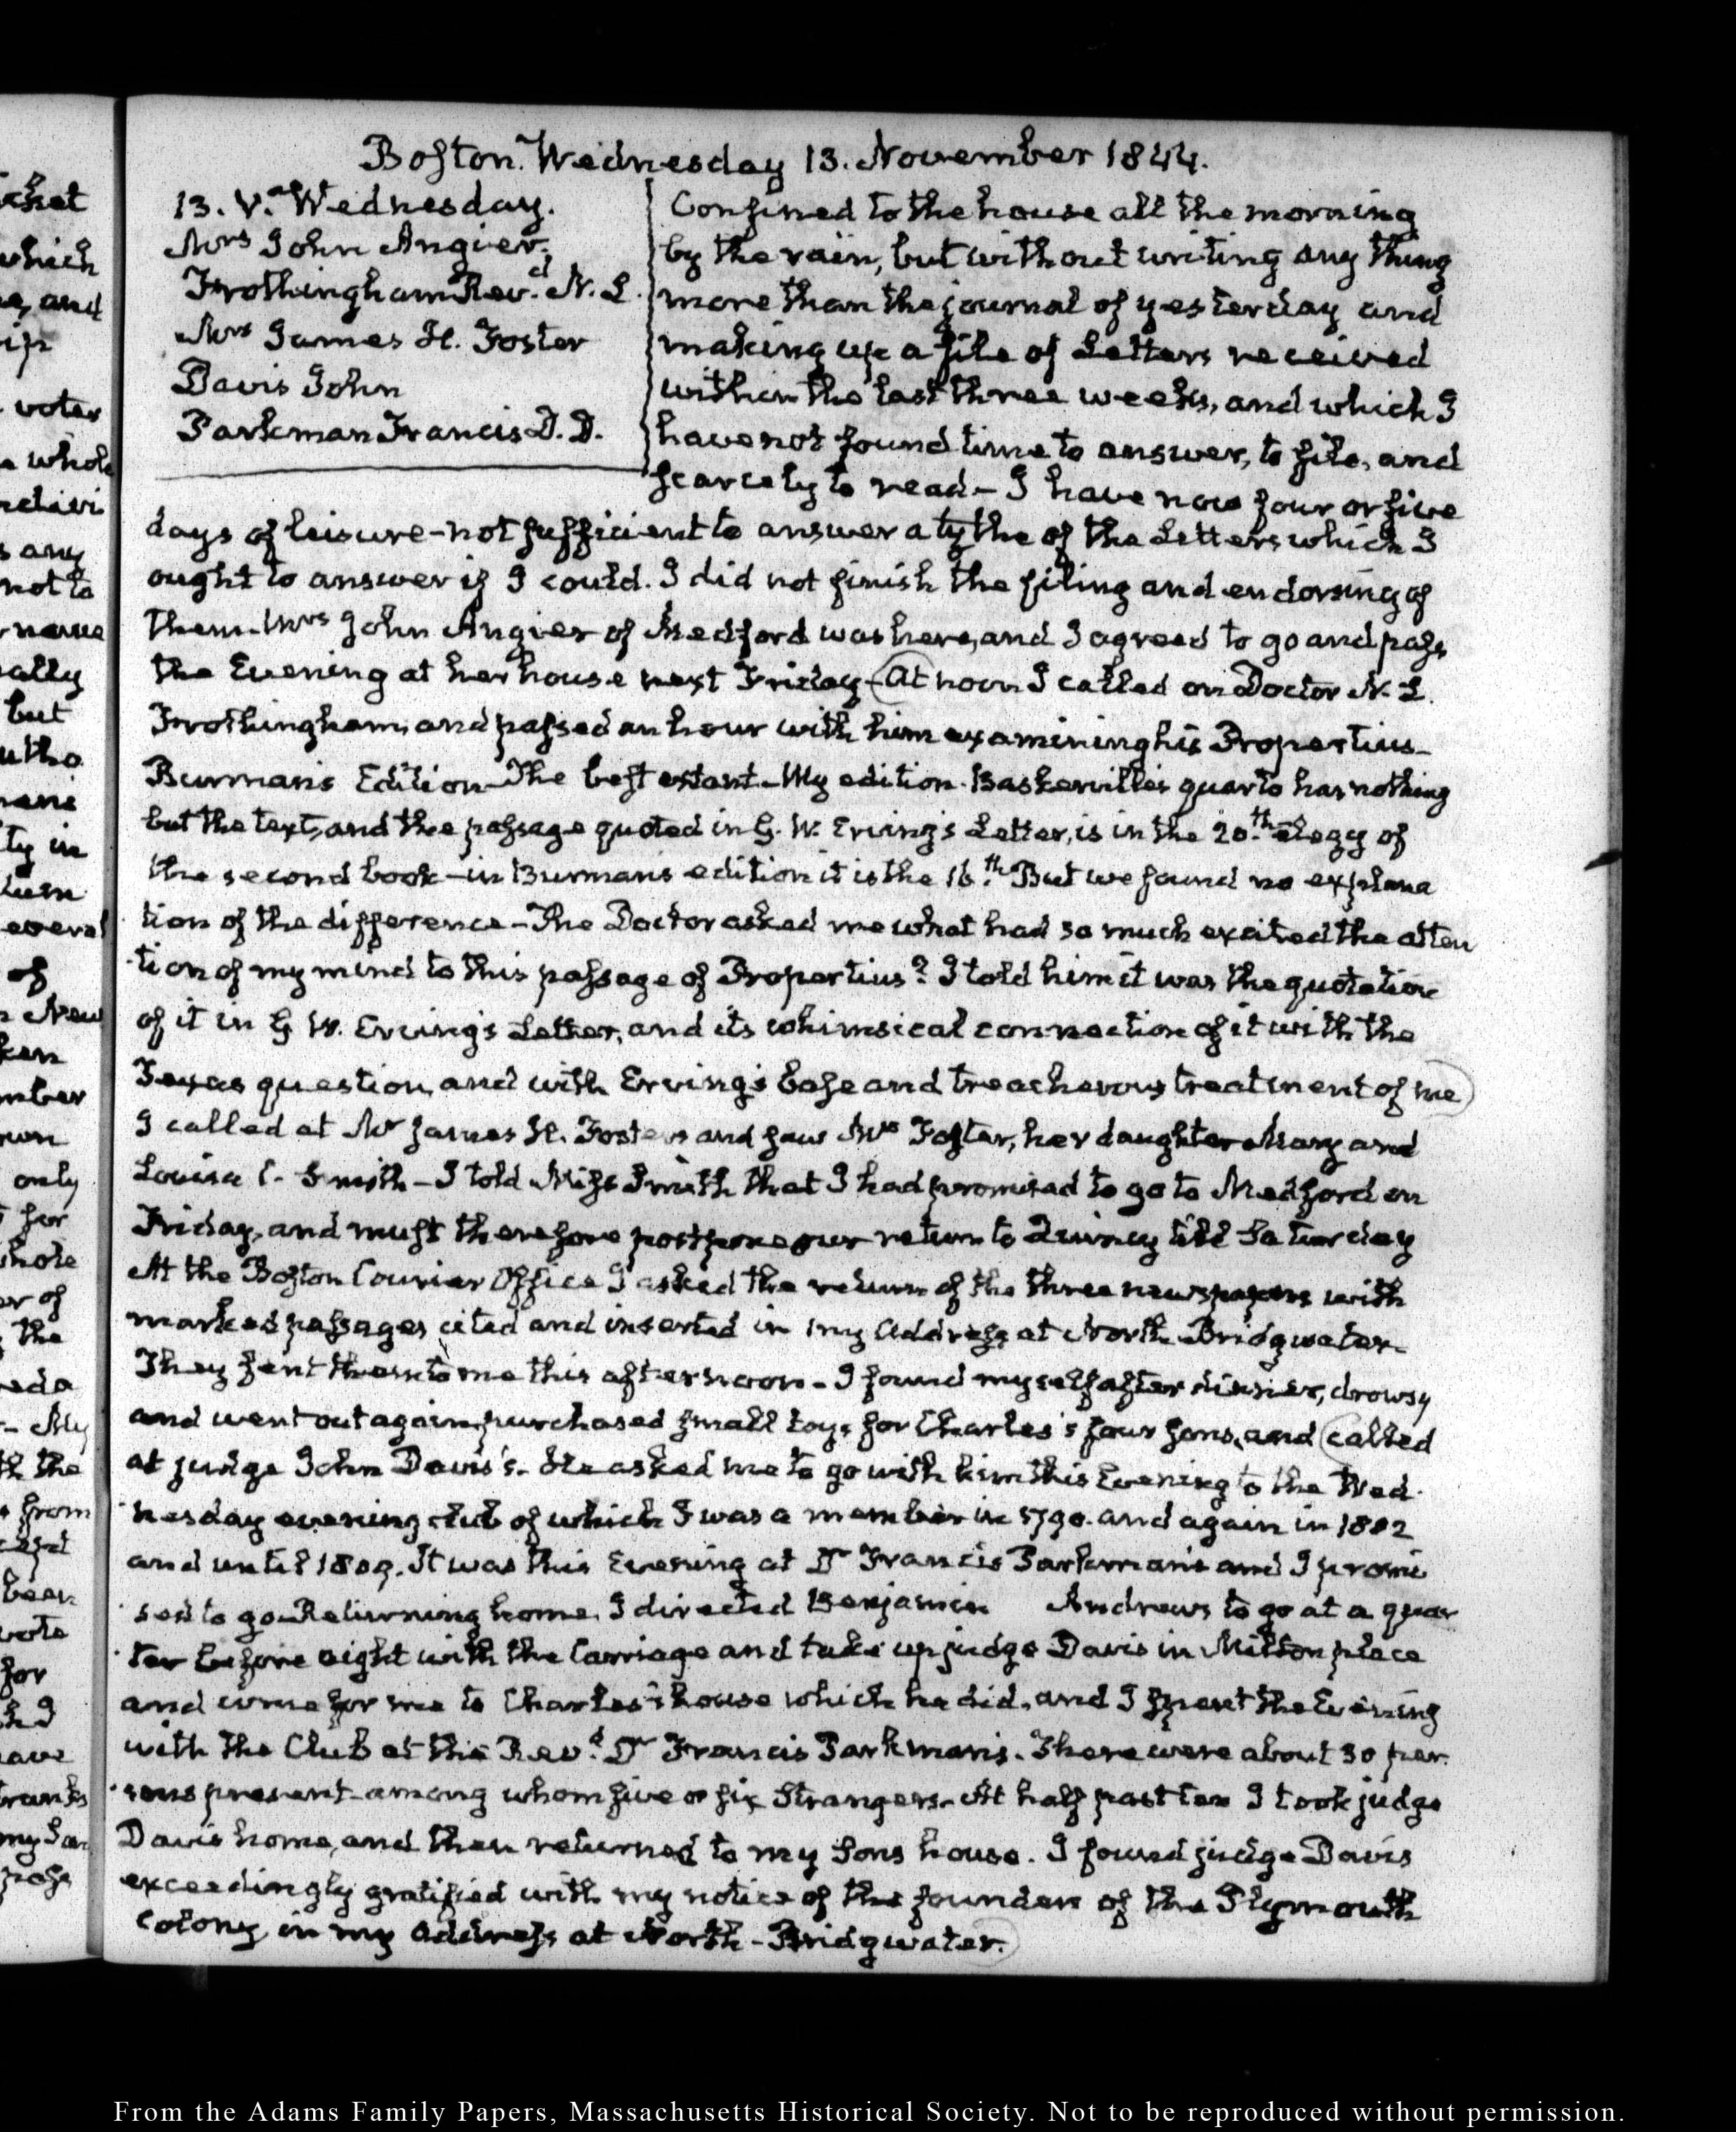 Boston. Wednesday 13. November 1844.
13. V.a Wednesday.
Mrs John Angier.
Frothingham Rev.d N. L.
Mrs James H. Foster
Davis John
Parkman Francis D.D.
Confined to the house all the morning
by the rain, but without writing any thing
more than the journal of yesterday and
making up a file of Letters received
within the last three weeks, and which I
have not found time to answer, to file, and
scarcely to read - I have now four or five
days of leisure - not sufficient to answer a tythe of the Letters which I
ought to answer if I could. I did not finish the filing and endorsing of
them. Mrs John Angier of Medford was here, and I agreed to go and pass
the Evening at her house next Friday - At noon I called on Doctor N. L.
Frothingham, and passed an hour with him examining his Propertius -
Burman's Edition - The best extant - My edition. Baskerville's quarto has nothing
but the text, and the passage quoted in G. W. Erving's Letter, is in the 20.th elegy of
the second book - in Burman's edition it is the 16.th But we found no explana
tion of the difference - The Doctor asked me what had so much excited the atten
tion of my mind to this passage of Propertius? I told him it was the quotation
of it in G. W. Erving's Letter, and its whimsical connection of it with the
Texas question, and with Erving's base and treacherous treatment of me
I called at Mr James H. Foster's and saw Mrs Foster, her daughter Mary and
Louisa C. Smith - I told Miss Smith that I had promised to go to Medford on
Friday, and must therefore postpone our return to Quincy till Saturday
At the Boston Courier Office I asked the return of the three newspapers with
marked passages cited and inserted in my Address at North-Bridgwater -
They sent them to me this afternoon - I found myself after dinner, drowsy
and went out again, purchased small toys for Charles's four sons, and called
at judge John Davis's. He asked me to go with him this Evening to the Wed-
nesday evening club of which I was a member in 1790. and again in 1802
and until 1809. It was this Evening at Dr Francis Parkman's and I promi
sed to go. Returning home, I directed Benjamin Andrews to go at a quar
ter before eight with the Carriage and take up judge Davis in Milton place
and come for me to Charles's house which he did, and I spent the Evening
with the Club at the Rev.d Dr Francis Parkman's. There were about 30 per-
sons present among whom five or six Strangers. At half past ten I took judge
Davis home, and then returned to my Sons house. I found judge Davis
exceedingly gratified with my notice of the founders of the Plymouth
Colony in my Address at North-Bridgwater.
From the Adams Family Papers, Massachusetts Historical Society. Not to be reproduced without permission.